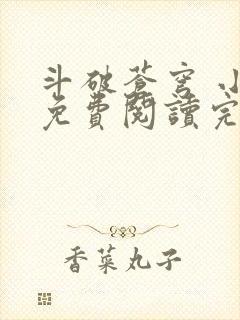 斗破蒼穹 小
免費閱讀完
香菜丸子